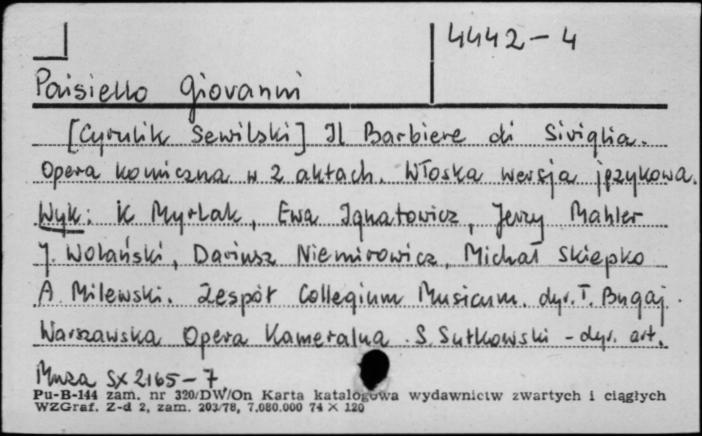 4442-4
Paisiello Giovanni
[Cyrulik Sewilski] Il Barbiere di Siviglia.
Opera komiczna w 2 aktach. Włoska wersja językowa.
Wyk: K Myrlak, Ewa Ignatowicz, Jerzy Mahler
J. Wolański, Dariusz Niemirowicz, Michał Skiepko
A. Milewski. Zespół Collegium Musicum. dyr. T. Bugaj.
Warszawska Opera Kameralna. S. Sutkowski - dyr. art.
Muza SX 2165-7
Pu-B-144 zam. nr 320/DW/On Karta katalogowa wydawnictw zwartych i ciągłych
WZGraf. Z-d 2, zam. 203/78, 7.080.000 74 × 120